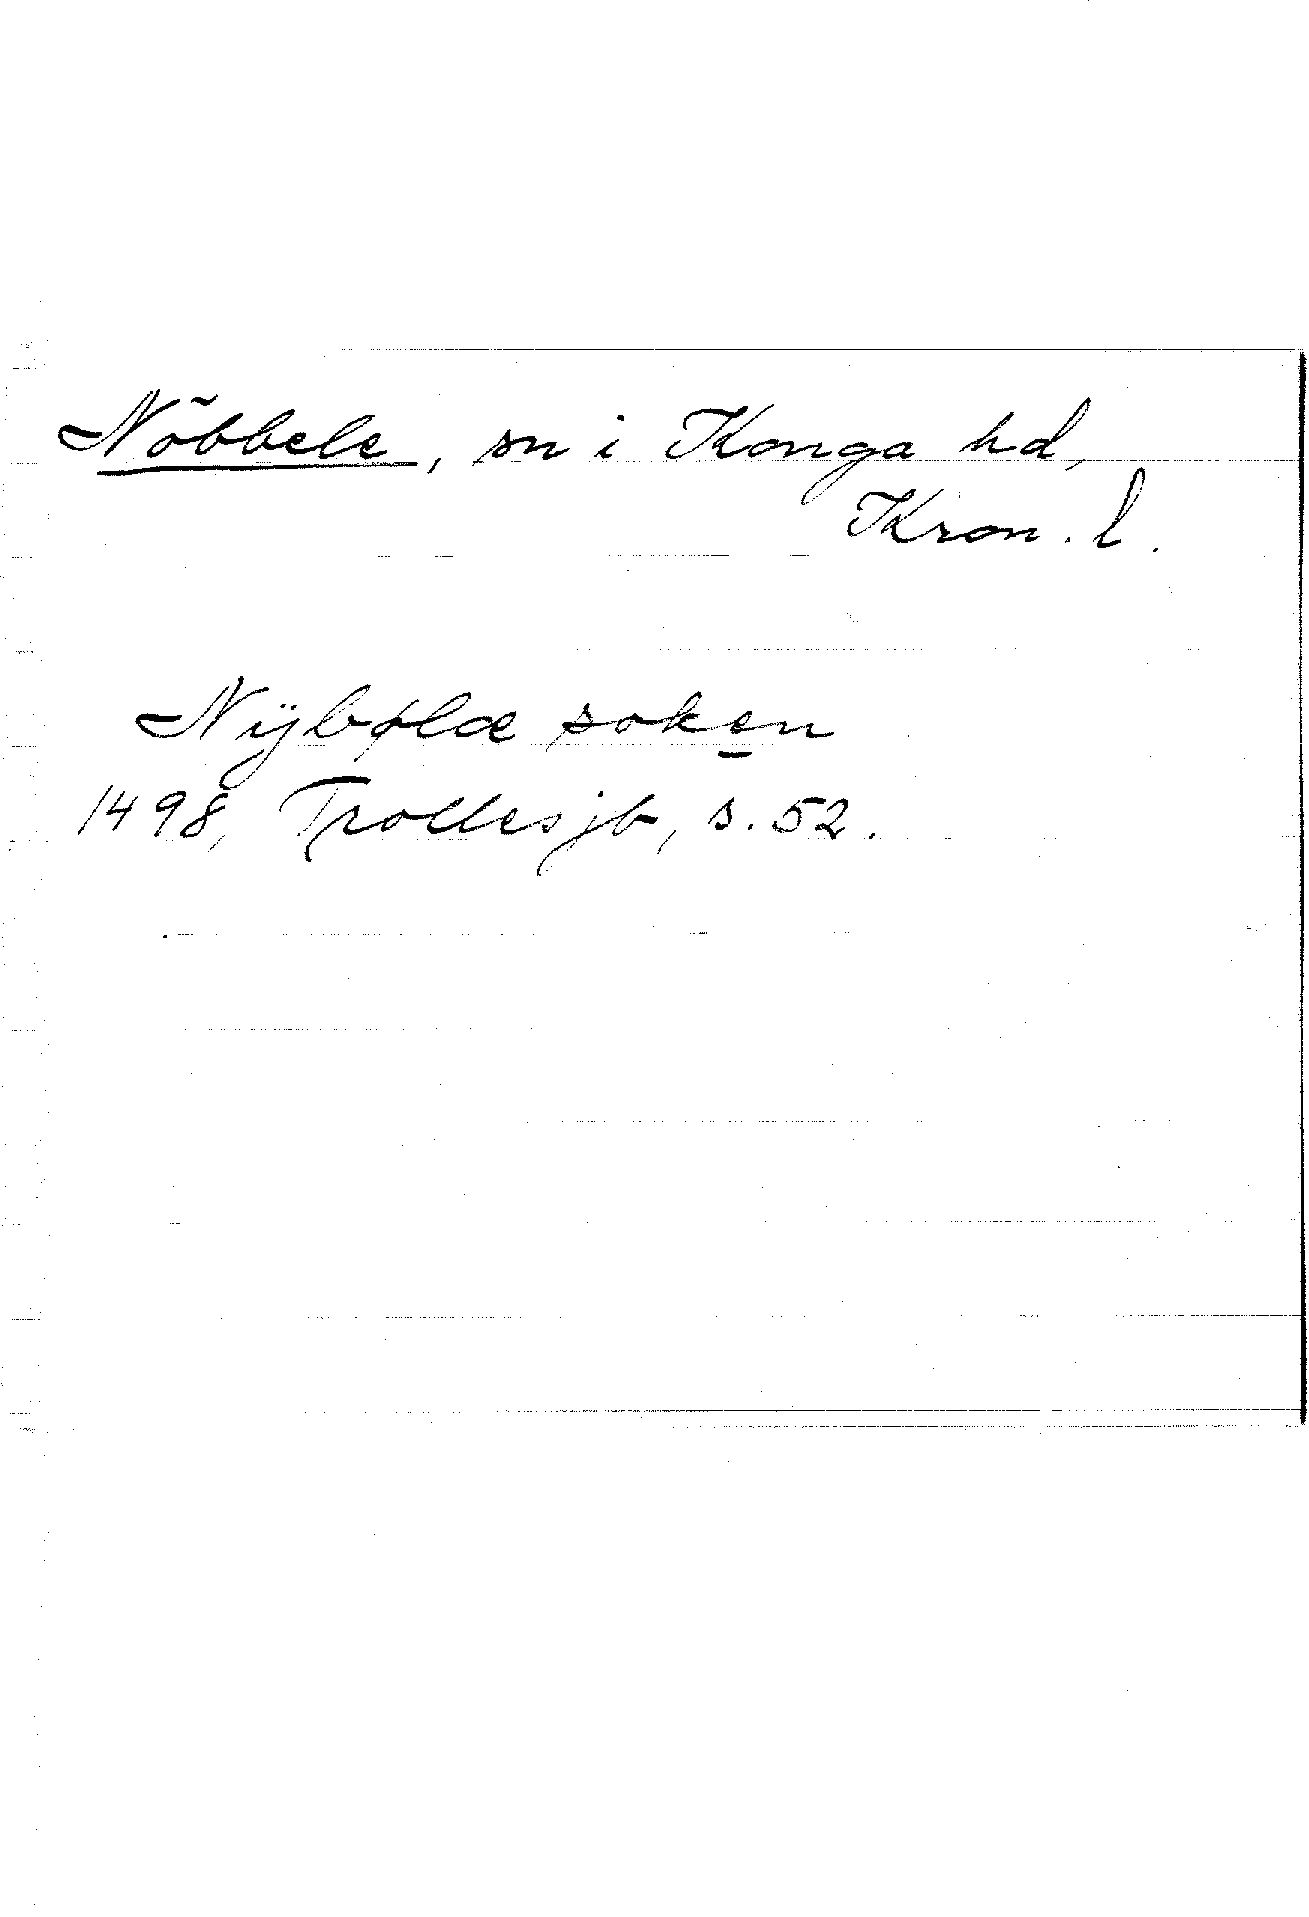 Nöbbele, sn i Konga hd,
Kron. l.
Nÿbølæ soken
1498, Trollesjb, s. 52.